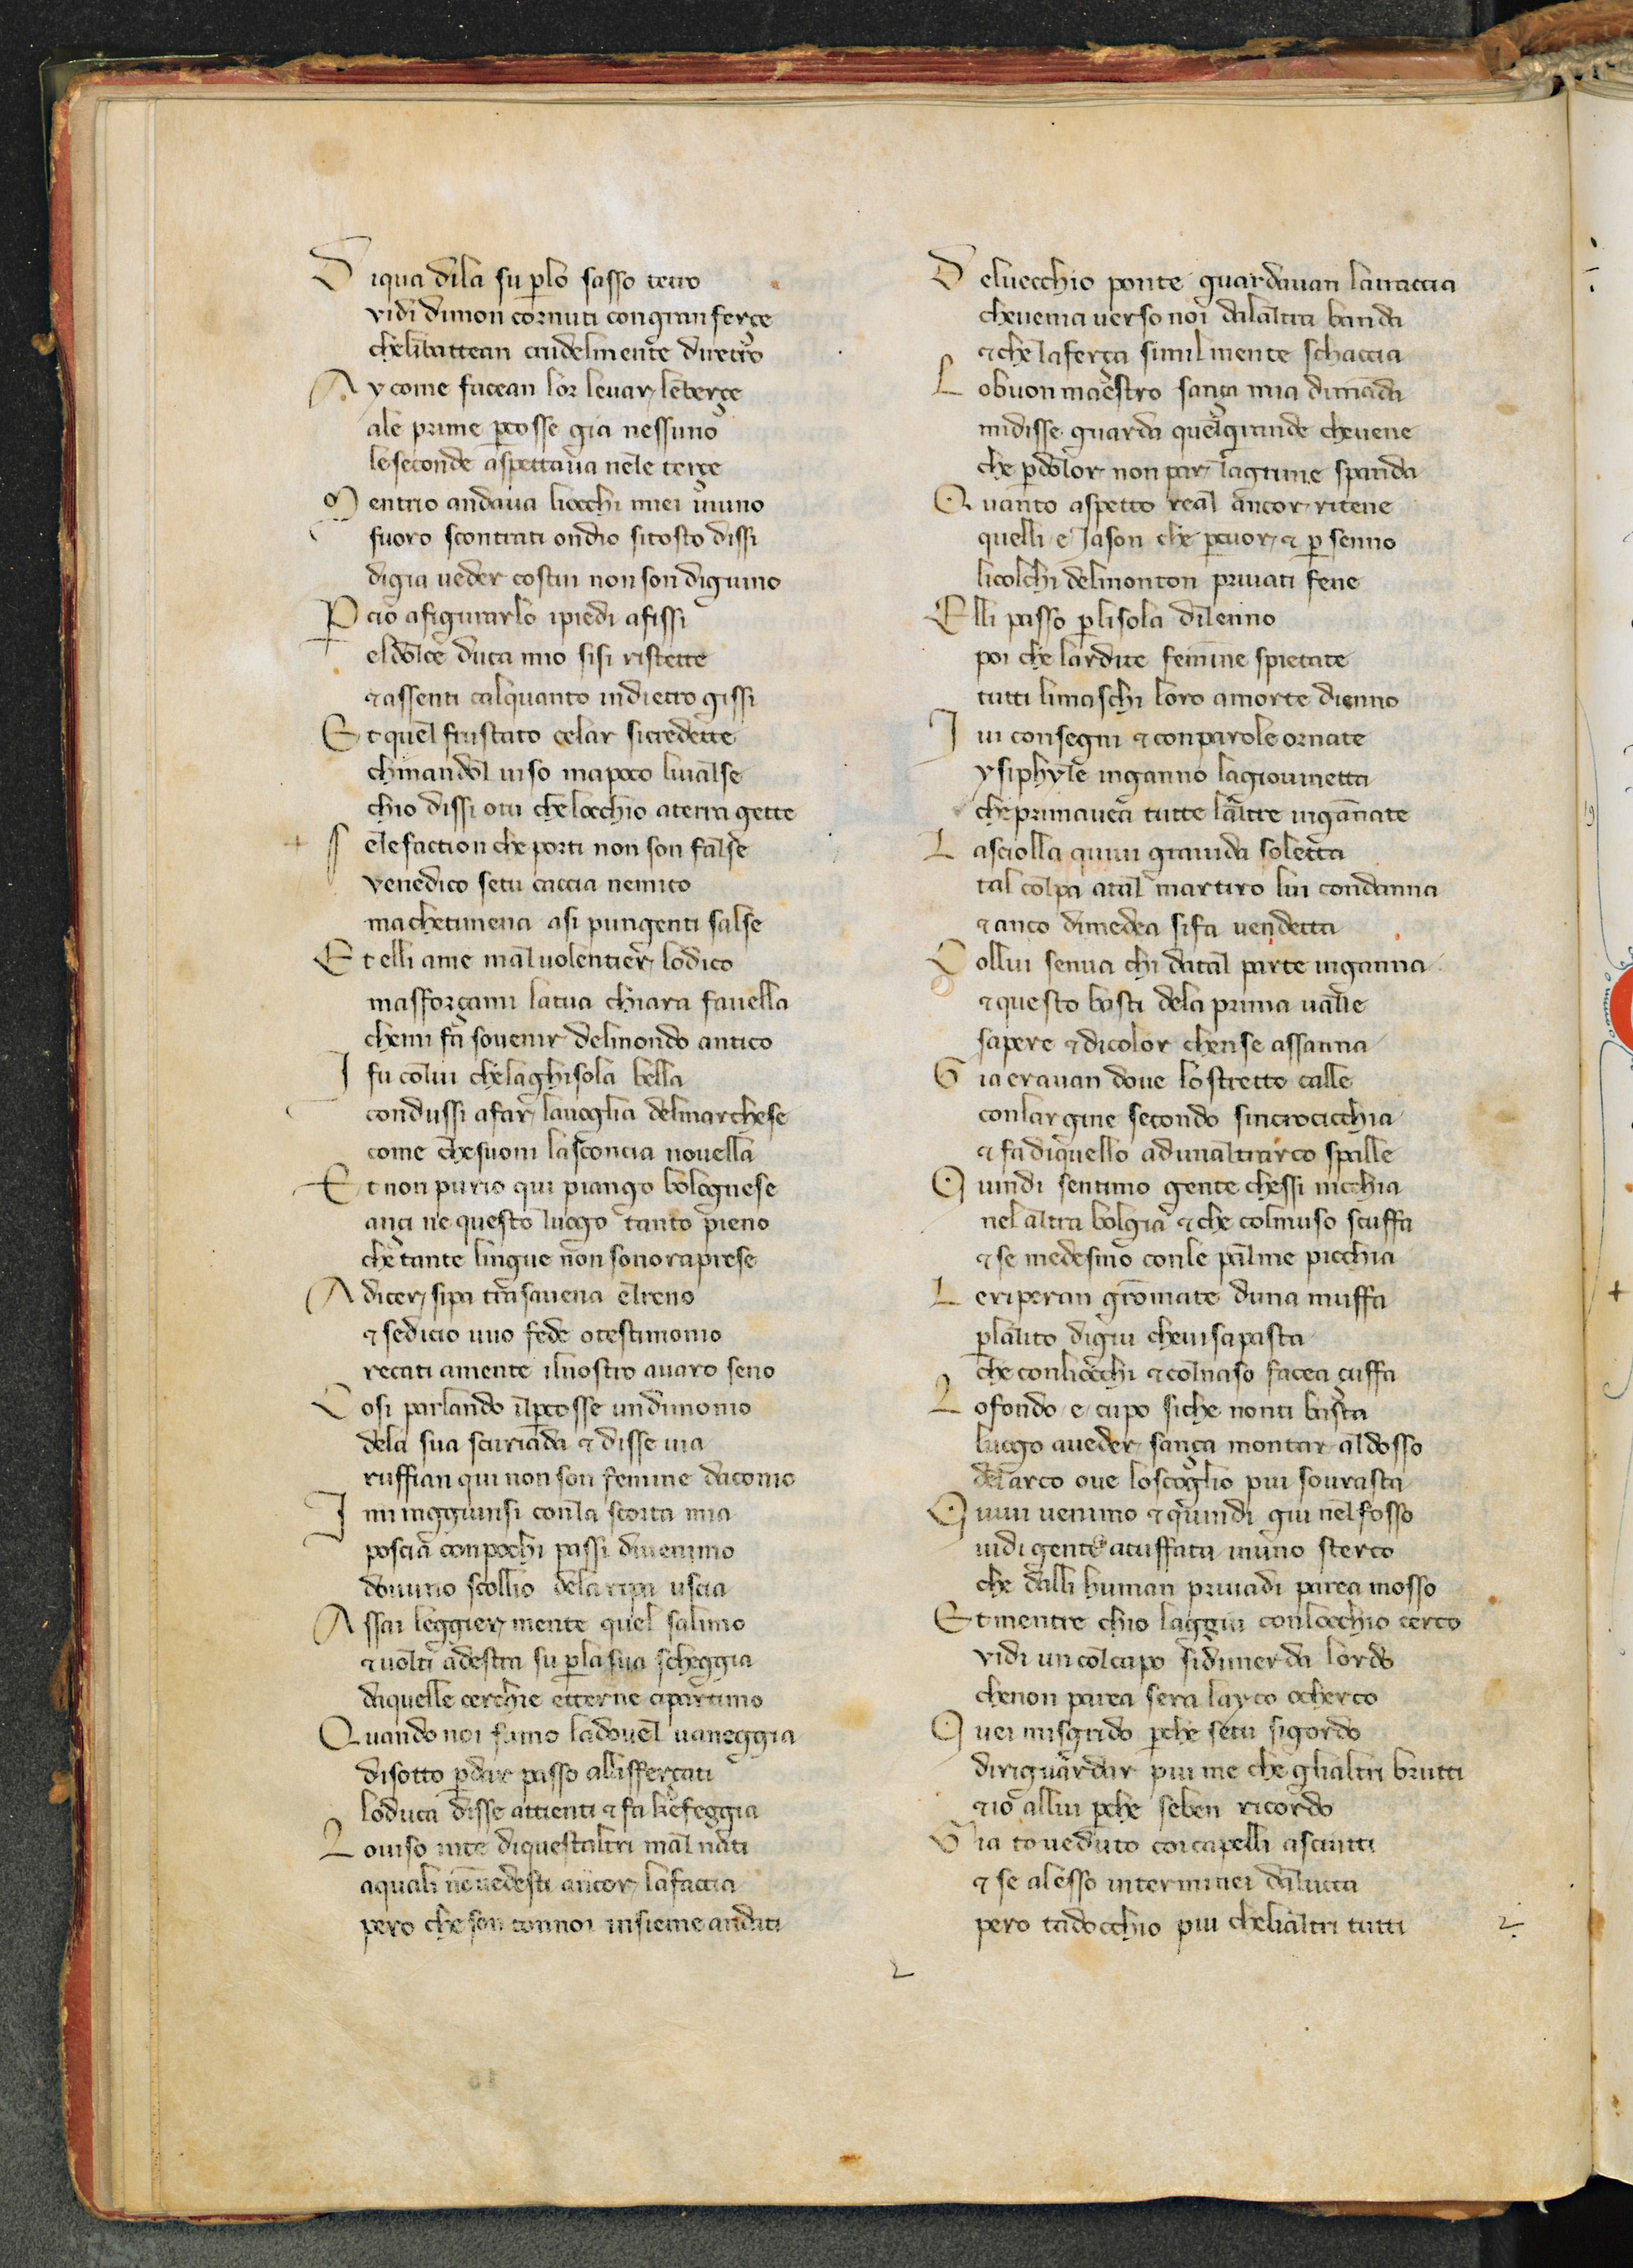 Diqua dila su plo sasso tetro
vidi dimon cornuti congran ferçe
chelibattean crudelmente diretro
Ay come facean lor levar leberçe
ale prime pcosse gia nessuno
leseconde aspettava nele terçe
Mentrio andava liocchi miei inuno
fuoro scontrati ondio sitosto dissi
digia veder costui non son digiuno
Pcio afigurarlo ipiedi afissi
eldolce duca mio sisi ristette
& assenti calquanto indietro gissi
Et quel frustato celar sicredette
chinandol viso mapoco livalse
chio dissi otu chelocchio aterra gette
Sele faction che porti non son false
venedico setu caccia nemico
machetimena asi pungenti salse
Et elli ame mal volentier lodico
masforçami latua chiara favella
chemi fa sovenir delmondo antico
I fu colui chelaghisola bella
condussi afar lavoglia delmarchese
come chesuoni lasconcia novella
Et non purio qui piango bolognese
ançi ne questo luogo tanto pieno
che tante lingue non sonoraprese
A dicer sipa tra savena elreno
& sedicio vuo fede otestimonio
recati amente ilnostro avaro seno
Cosi parlando ilpcosse un dimonio
dela sua scuriada & disse via
ruffian qui non son femine daconio
I mi ragiunsi conla scorta mia
poscia conpochi passi divenimo
dovuno scollio delaripa uscia
Assai leggier mente quel salimo
& volti adestra su pla sua scheggia
daquelle cerchie etterne cipartimo
Quando noi fumo ladovel vaneggia
disotto pdar passo allisferçati
loduca disse attienti & fa kefeggia
Loviso inte diquestaltri mal nati
aquali nonvedesti ancor lafaccia
pero che son connoi insieme andati
Delvecchio ponte guardavan latraccia
chevenia verso noi dalaltra banda
& che laferça similmente schaccia
Lobuon maestro sança mia dimada
midisse guarda quel grande chevene
che pdolor non par lagrime spanda
Quanto aspetto real ancor ritene
quelli e Jason che pcuor & p senno
licolchi delmonton privati fene
Elli passo plisola dilenno
poi che lardite femine spietate
tutti limaschi loro amorte dienno
Ivi consegni & conparole ornate
ysiphyle inganno lagiovinetta
cheprimavea tutte laltre inganate
Lasciolla quivi gravida soletta
tal colpa atal martiro lui condanna
& anco dimedea sifa vendetta
Collui senva chi datal parte inganna
& questo basti dela prima valle
sapere & dicolor chense assanna
Gia eravan dove lostretto calle
conlargine secondo sincrocicchia
& fa diquello adunaltrarco spalle
Quindi sentimo gente chessi nicchia
nel altra bolgia & che colmuso scuffa
& se medesmo conle palme picchia
Leriperan gromate duna muffa
plalito digiu chevisapasta
che conliocchi & colnaso facea çuffa
Lofondo e cupo siche nonci basta
luogo aveder sança montar aldosso
delarco ove loscoglio piu sourasta
Quivi venimo & quindi giu nel fosso
vidi gente atuffata inuno sterco
che dalli human privadi parea mosso
Et mentre chio laggiu conlocchio cerco
vidi un colcapo sidimerda lordo
chenon parea sera layco ocherco
Quei misgrido pche setu sigordo
diriguardar piu me che glialtri brutti
& io allui pche seben ricordo
Gia toveduto coicapelli asciutti
& se alesso interminei daluca
pero tadocchio piu chelialtri tutti
2